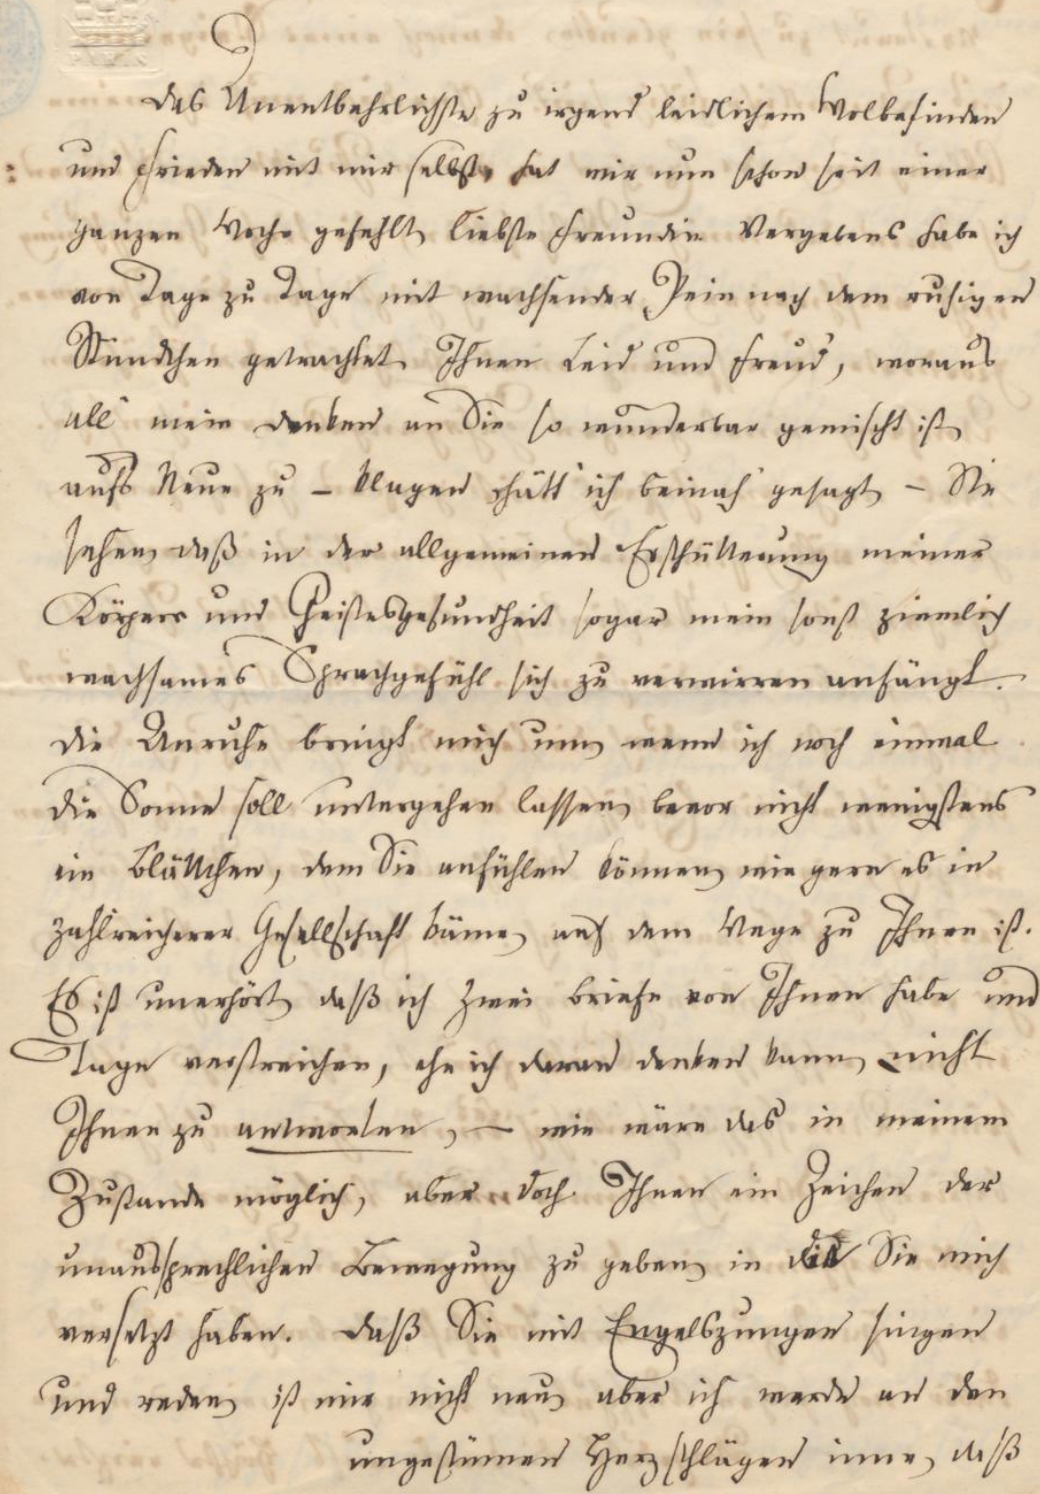 Das Unentbehrlichste zu irgend leidlichem Wolbefinden
und Frieden mit mir selbst, hat mir nun schon seit einer
ganzen Woche gefehlt, liebste Freundin. Vergebens habe ich
von Tage zu Tage mit wachsender Pein nach dem ruhigen
Stündchen getrachtet, Ihnen Leid und Freud, woraus
all' mein Denken an Sie so wunderbar gemischt ist,
aufs Neue zu – klagen hätt' ich beinah' gesagt, – Sie
sehen, daß in der allgemeinen Erschütterung meiner
Körper und Geistesgesundheit sogar mein sonst ziemlich
wachsames Sprachgefühl sich zu verwirren anfängt.
Die Unruhe bringt mich um, wenn ich noch einmal
die Sonne soll untergehen lassen, bevor nicht wenigstens
ein Blättchen, dem Sie anfühlen können, wie gern es in
zahlreicherer Gesellschaft käme, auf dem Wege zu Ihnen ist.
Es ist unerhört, daß ich zwei Briefe von Ihnen habe und
Tage verstreichen, ehe ich daran denken kann, nicht
Ihnen zu antworten, – wie wäre das in meinem
Zustande möglich, aber doch Ihnen ein Zeichen der
unaussprechlichen Bewegung zu geben, in die Sie mich
versetzt haben. Daß Sie mit Engelszungen singen
und reden, ist mir nicht neu, aber ich werde an den
ungestümen Herzschlägen inne, daß